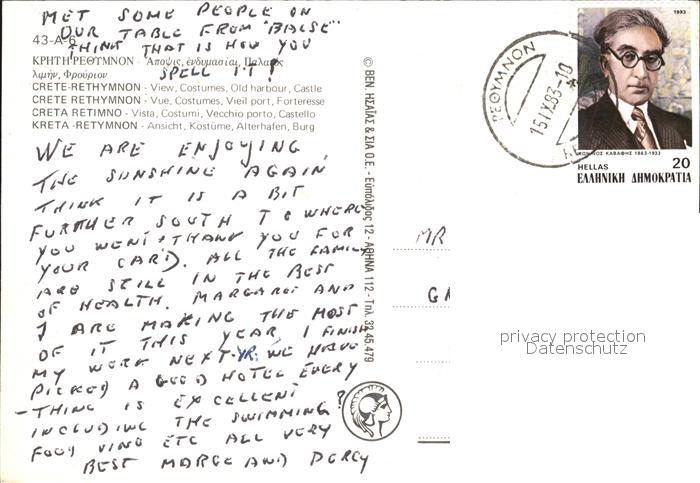 MET SOME PEOPLE ON
OUR TABLE FROM "BALSE"
THINK THAT IS HOW YOU
SPELL IT!
43-A-6
ΚΡΗΤΗ ΡΕΘΥΜΝΟΝ - Άποψις, ένδυμασίαι, Παλαιός
λιμήν, Φρούριον
CRETE-RETHYMNON - View, Costumes, Old harbour, Castle
CRETE RETHYMNON - Vue, Costumes, Vieil port, Forteresse
CRETA RETIMNO - Vista, Costumi, Vecchio porto, Castello
KRETA -RETYMNON - Ansicht, Kostüme, Alterhafen, Burg
WE ARE ENJOYING
THE SUNSHINE AGAIN
THINK IT IS A BIT
FURTHER SOUTH TO WHERE
YOU WENT, THANK YOU FOR
YOUR CARD. ALL THE FAMILY
ARE STILL IN THE BEST
OF HEALTH. MARGARET AND
I ARE MAKING THE MOST
OF IT THIS YEAR I FINISH
MY WORK NEXT YR. WE HAVE
PICKED A GOOD HOTEL EVERY
-THING IS EXCELLENT
INCLUDING THE SWIMMING!
FOOD VINO ETC ALL VERY
BEST MARGE AND PERCY
© ΒΕΝ. ΗΣΑΪΑΣ & ΣΙΑ Ο.Ε. - Εὐπόλιδος 12 - ΑΘΗΝΑ 112 - Τηλ. 32 45.479
ΡΕΘΥΜΝΟΝ
15 IX 83-10
1983
ΚΩΝ/ΝΟΣ ΚΑΒΑΦΗΣ 1863-1933
HELLAS 20
ΕΛΛΗΝΙΚΗ ΔΗΜΟΚΡΑΤΙΑ
MR
privacy protection
Datenschutz